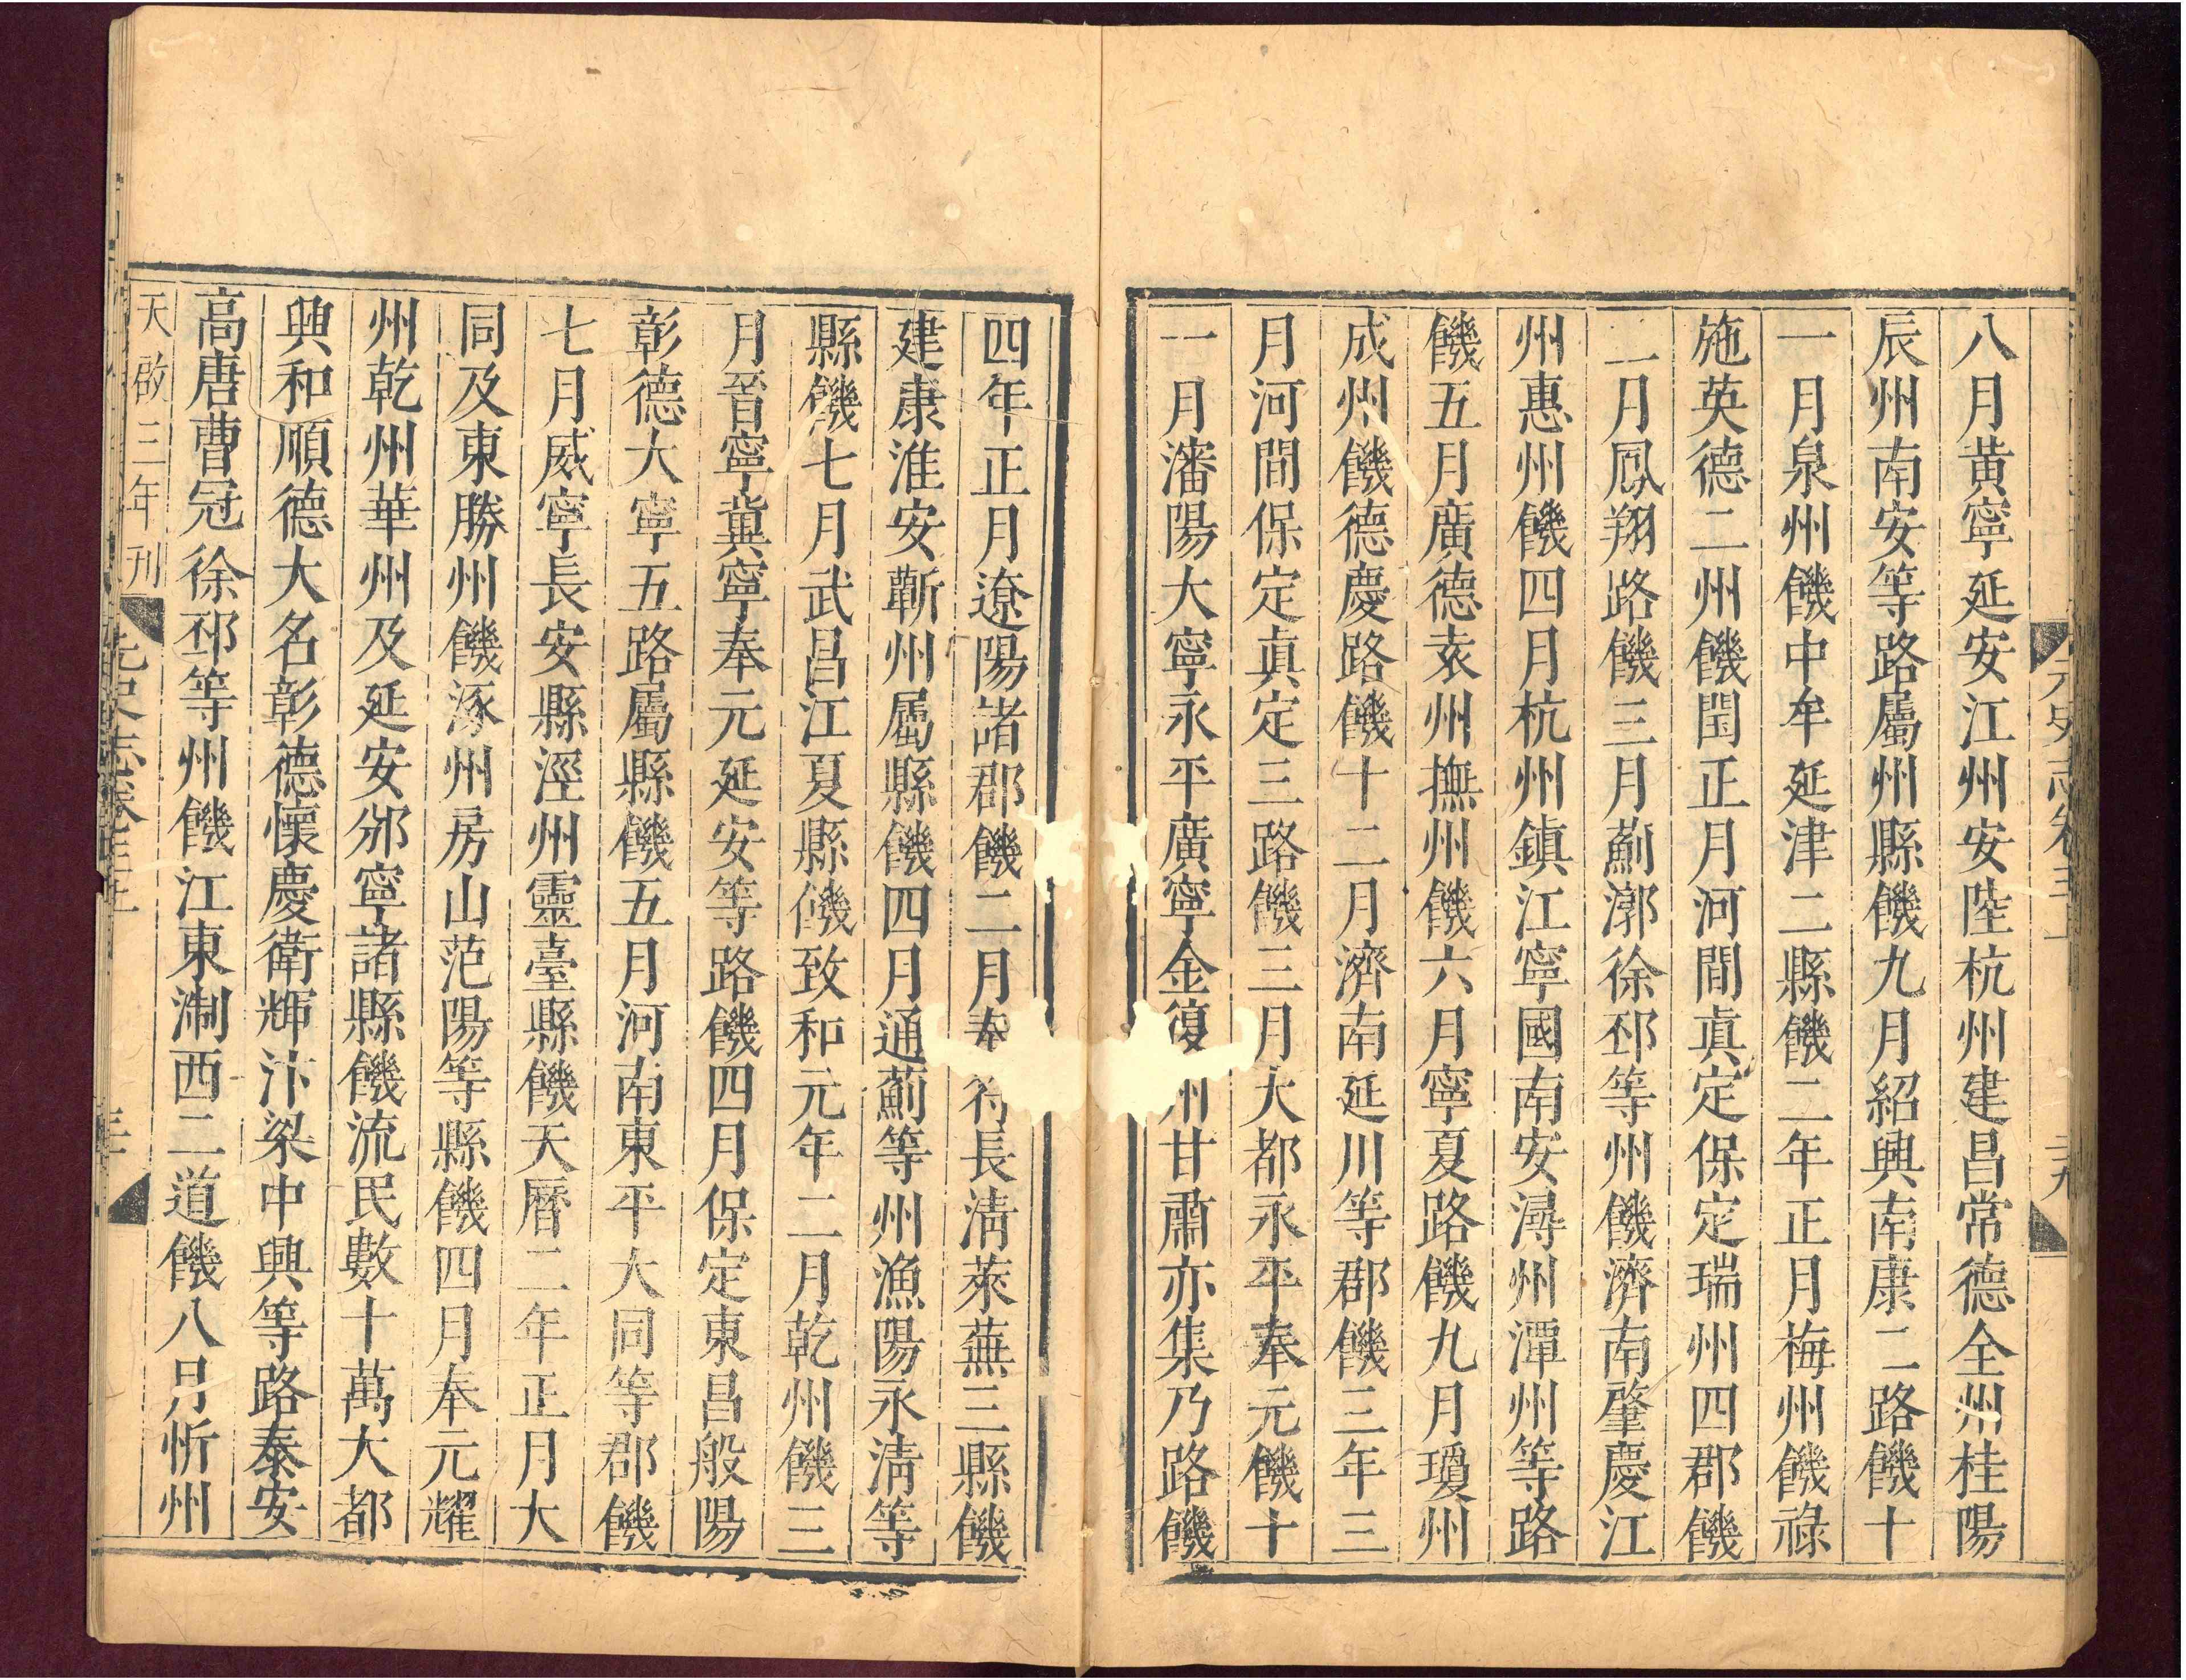 八月黄寧延安江州安陸杭州建昌常德全州桂陽
辰州南安等路屬州縣饑九月紹興南康二路饑十
一月泉州饑中牟延津二縣饑二年正月梅州饑祿
施英德二州饑閏正月河間真定保定瑞州四郡饑
二月鳳翔路饑三月薊漷徐邳等州饑濟南肇慶江
州惠州饑四月杭州鎮江寧國南安潯州潭州等路
饑五月廣德袁州撫州饑六月寧夏路饑九月瓊州
成州饑德慶路饑十二月濟南延川等郡饑三年三
月河間保定真定三路饑三月大都永平奉元饑十
一月瀋陽大寧永平廣寧金復州甘肅亦集乃路饑
四年正月遼陽諸郡饑二月奉符長清萊蕪三縣饑
建康淮安蘄州屬縣饑四月通薊等州漁陽永清等
縣饑七月武昌江夏縣饑致和元年二月乾州饑三
月晉寧冀寧奉元延安等路饑四月保定東昌般陽
彰德大寧五路屬縣饑五月河南東平大同等郡饑
七月威寧長安縣涇州靈臺縣饑天曆二年正月大
同及東勝州饑涿州房山范陽等縣饑四月奉元耀
州乾州華州及延安邠寧諸縣饑流民數十萬大都
興和順德大名彰德懷慶衛輝汴梁中興等路泰安
高唐曹冠徐邳等州饑江東淛西二道饑八月忻州
天啟三年刊
元史志卷三上